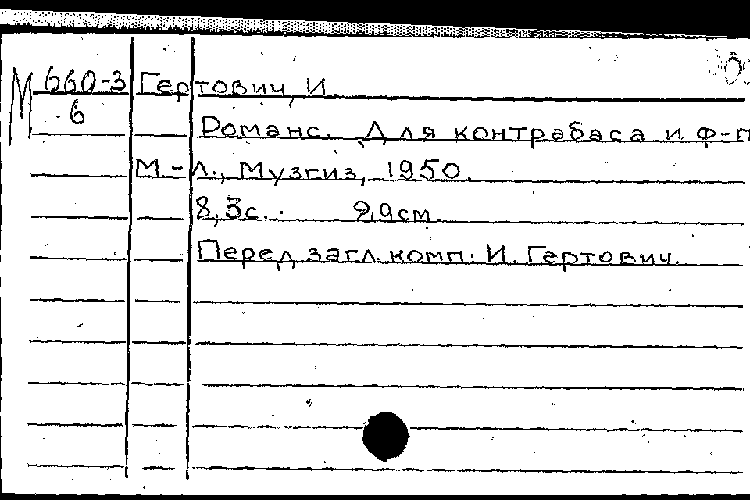 М 660-3 Гертович, И.
6
Романс. Для контрабаса и ф-п
М.-Л., Музгиз, 1950.
8, 3с. 29см.
Перед загл. комп. И. Гертович.